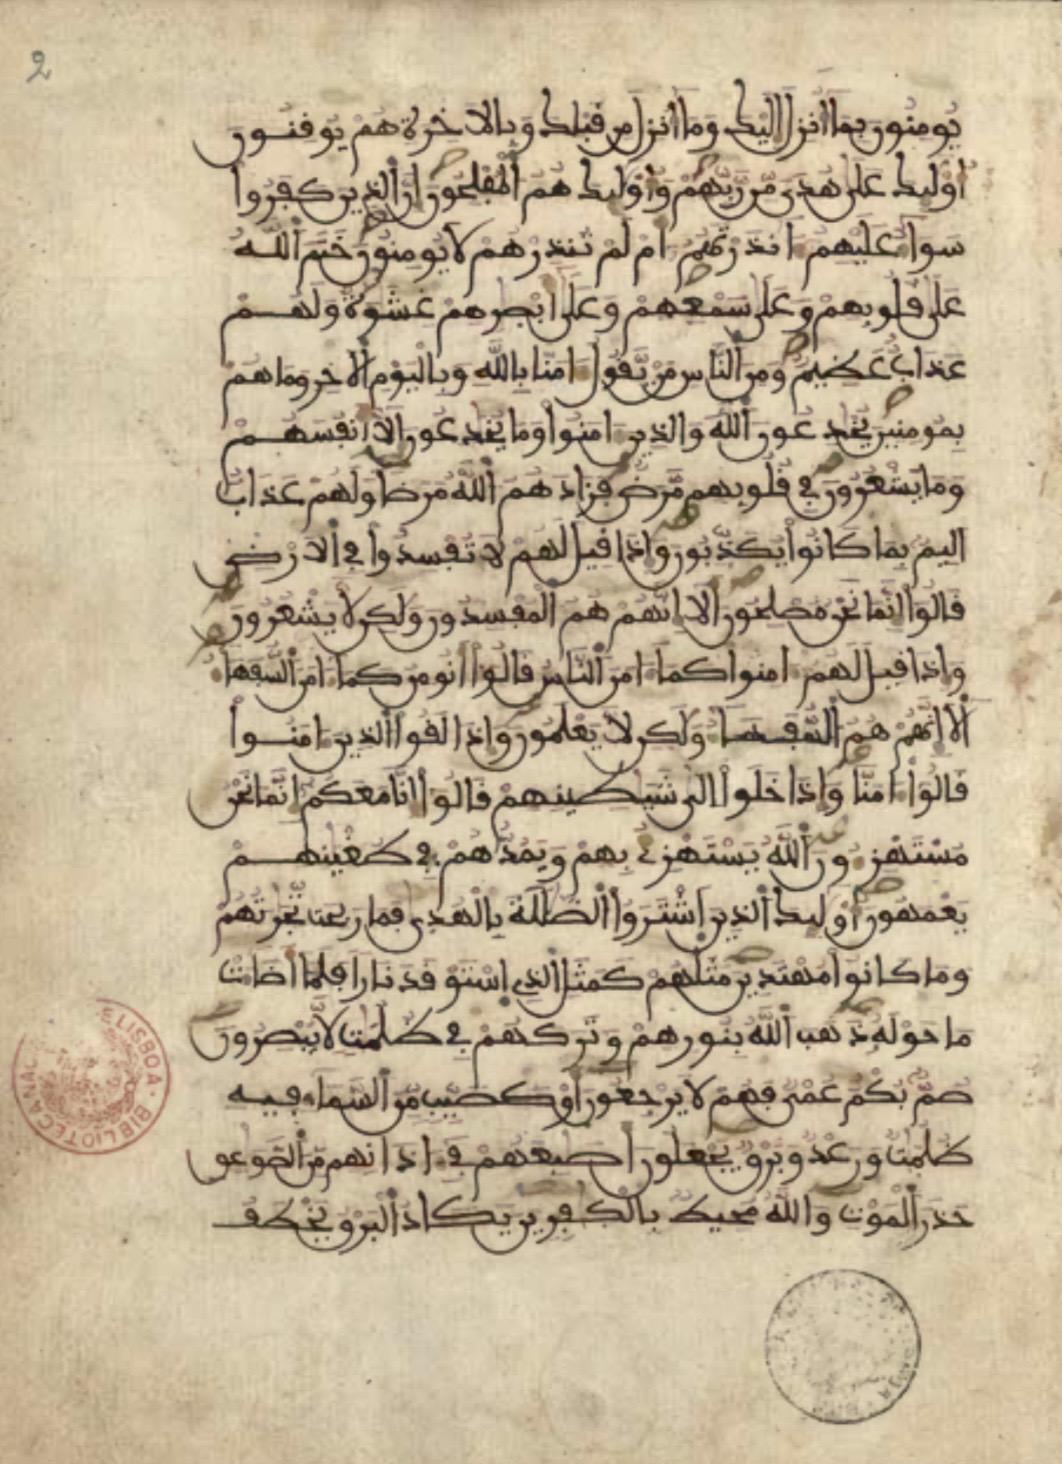 2
يُومِنُونَ بِمَا أُنزِلَ إِلَيْكَ وَمَا أُنزِلَ مِن قَبْلِكَ وَبِالَاخِرَةِ هُمْ يُوقِنُونَ
أُوْلَٰئِكَ عَلَىٰ هُدًى مِّن رَّبِّهِمْ وَأُوْلَٰئِكَ هُمُ الْمُفْلِحُونَ إِنَّ الذِينَ كَفَرُوا
سَوَآءٌ عَلَيْهِمُ ءَانذَرْتَهُمُ أَمْ لَمْ تُنذِرْهُمْ لَا يُومِنُونَ خَتَمَ اللَّهُ
عَلَىٰ قُلُوبِهِمْ وَعَلَىٰ سَمْعِهِمْ وَعَلَىٰ أَبْصَٰرِهِمْ غِشَٰوَةٌ وَلَهُمْ
عَذَابٌ عَظِيمٌ وَمِنَ النَّاسِ مَنْ يَّقُولُ ءَامَنَّا بِاللَّهِ وَبِالْيَوْمِ الْآخِرِ وَمَا هُمْ
بِمُومِنِينَ يُخَٰدِعُونَ اللَّهَ وَالذِينَ ءَامَنُوا وَمَا يُخَٰدِعُونَ إِلَّا أَنفُسَهُمْ
وَمَا يَشْعُرُونَ فِي قُلُوبِهِم مَّرَضٌ فَزَادَهُمُ اللَّهُ مَرَضًا وَلَهُمْ عَذَابٌ
أَلِيمٌ بِمَا كَانُوا يُكَذِّبُونَ وَإِذَا قِيلَ لَهُمْ لَا تُفْسِدُوا فِي الَارْضِ
قَالُوا إِنَّمَا نَحْنُ مُصْلِحُونَ أَلَا إِنَّهُمْ هُمُ الْمُفْسِدُونَ وَلَٰكِن لَّا يَشْعُرُونَ
وَإِذَا قِيلَ لَهُمُ ءَامِنُوا كَمَا ءَامَنَ النَّاسُ قَالُوا أَنُومِنُ كَمَا ءَامَنَ السُّفَهَآءُ
أَلَا إِنَّهُمْ هُمُ السُّفَهَآءُ وَلَٰكِن لَّا يَعْلَمُونَ وَإِذَا لَقُوا الذِينَ ءَامَنُوا
قَالُوا ءَامَنَّا وَإِذَا خَلَوْا إِلَىٰ شَيَٰطِينِهِمْ قَالُوا إِنَّا مَعَكُمُ إِنَّمَا نَحْنُ
مُسْتَهْزِءُونَ اللَّهُ يَسْتَهْزِئُ بِهِمْ وَيَمُدُّهُمْ فِي طُغْيَٰنِهِمْ
يَعْمَهُونَ أُوْلَٰئِكَ الذِينَ اشْتَرَوُا الضَّلَٰلَةَ بِالْهُدَىٰ فَمَا رَبِحَت تِّجَٰرَتُهُمْ
وَمَا كَانُوا مُهْتَدِينَ مَثَلُهُمْ كَمَثَلِ الذِي اسْتَوْقَدَ نَارًا فَلَمَّا أَضَآءَتْ
مَا حَوْلَهُ ذَهَبَ اللَّهُ بِنُورِهِمْ وَتَرَكَهُمْ فِي ظُلُمَٰتٍ لَّا يُبْصِرُونَ
صُمٌّ بُكْمٌ عُمْيٌ فَهُمْ لَا يَرْجِعُونَ أَوْ كَصَيِّبٍ مِّنَ السَّمَآءِ فِيهِ
ظُلُمَٰتٌ وَرَعْدٌ وَبَرْقٌ يَجْعَلُونَ أَصَٰبِعَهُمْ فِي ءَاذَانِهِم مِّنَ الصَّوَٰعِقِ
حَذَرَ الْمَوْتِ وَاللَّهُ مُحِيطٌ بِالْكَٰفِرِينَ يَكَادُ الْبَرْقُ يَخْطَفُ
LISBOA · BIBLIOTECA NAC